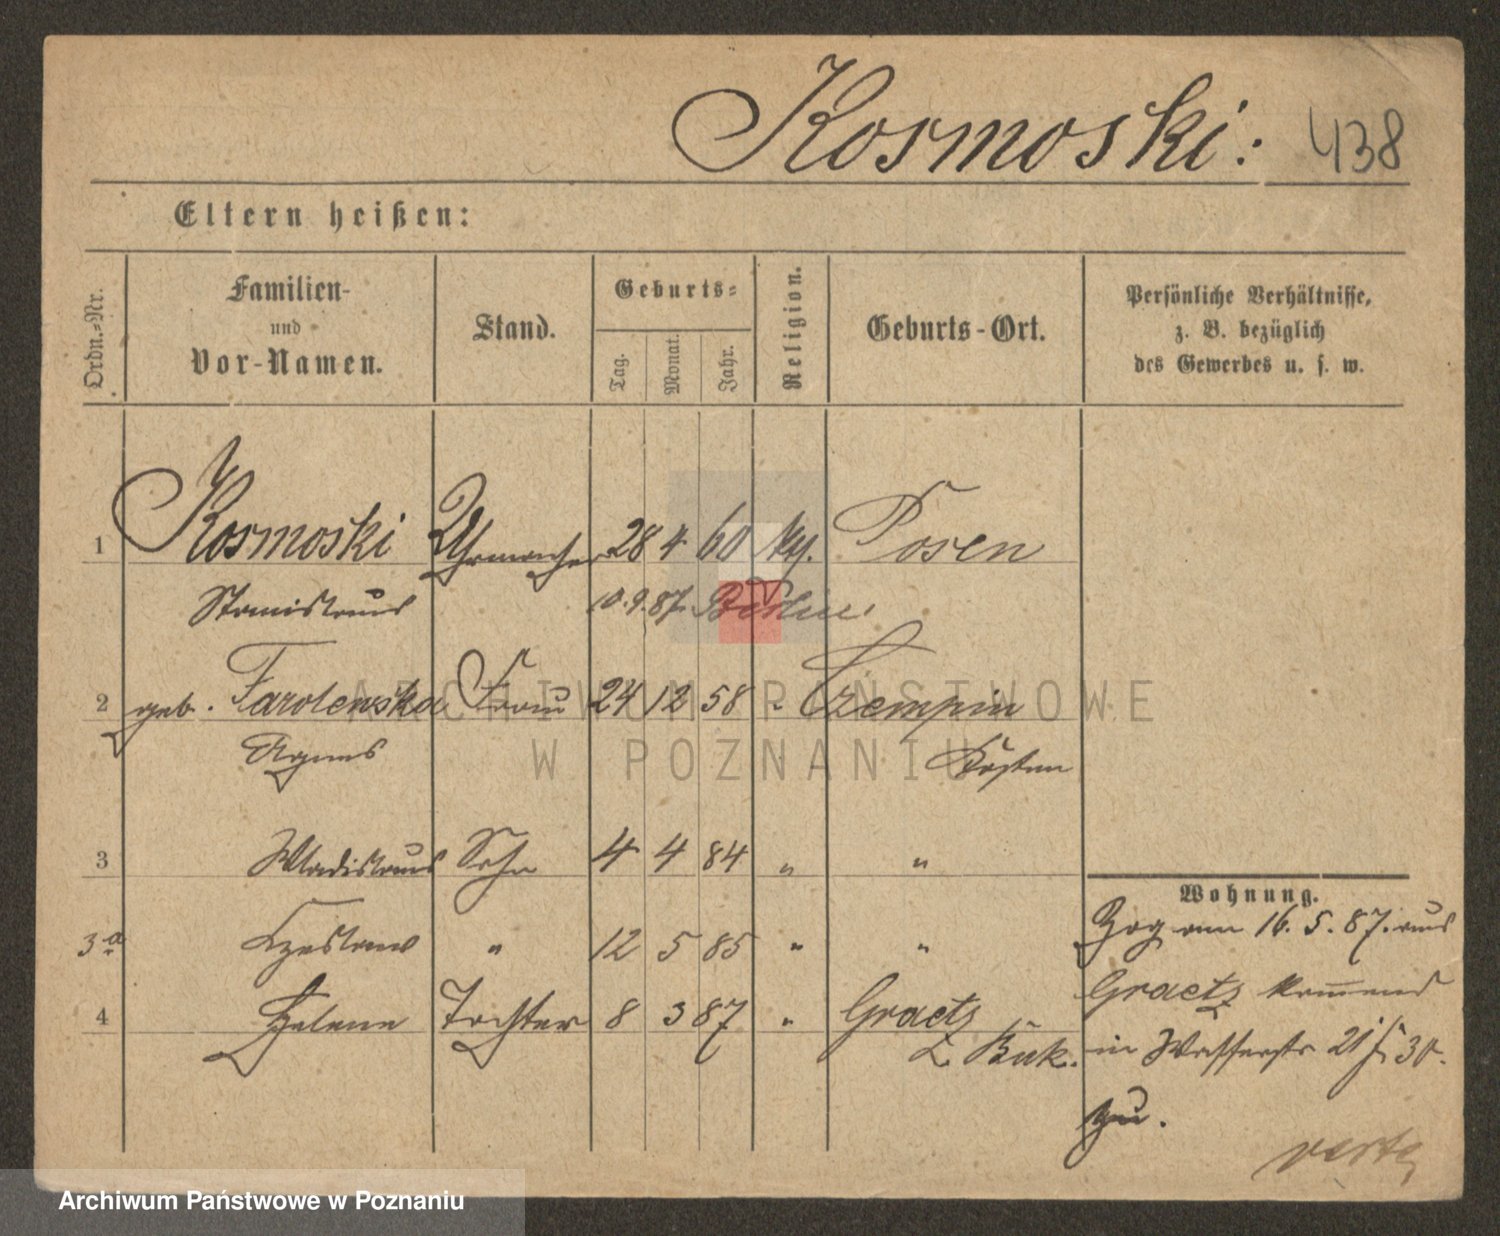 Kosmoski: 438
Eltern heißen:
Ordn.-Nr.
Familien-
und
Vor-Namen.
Stand.
Geburts-
Tag.
Monat.
Jahr.
Religion.
Geburts-Ort.
Persönliche Verhältnisse,
z. B. bezüglich
des Gewerbes u. s. w.
1 Kosmoski Uhrmacher 28 4 60 Posen
Stanislaus 10.9.87. Berlin.
2 geb. Frau 24 12 58 " Czempin
Agnes Kosten
ARCHIWUM PAŃSTWOWE
W POZNANIU
3 Wladislaus Sohn 4 4 84 " "
3a Czeslaw " 12 5 85 " "
4 Helene Tochter 8 3 87 " Graetz
Buk.
Wohnung.
Zog am 16. 5. 87. aus
Graetz kommend
in Wasserstr 21
zu.
verte
Archiwum Państwowe w Poznaniu